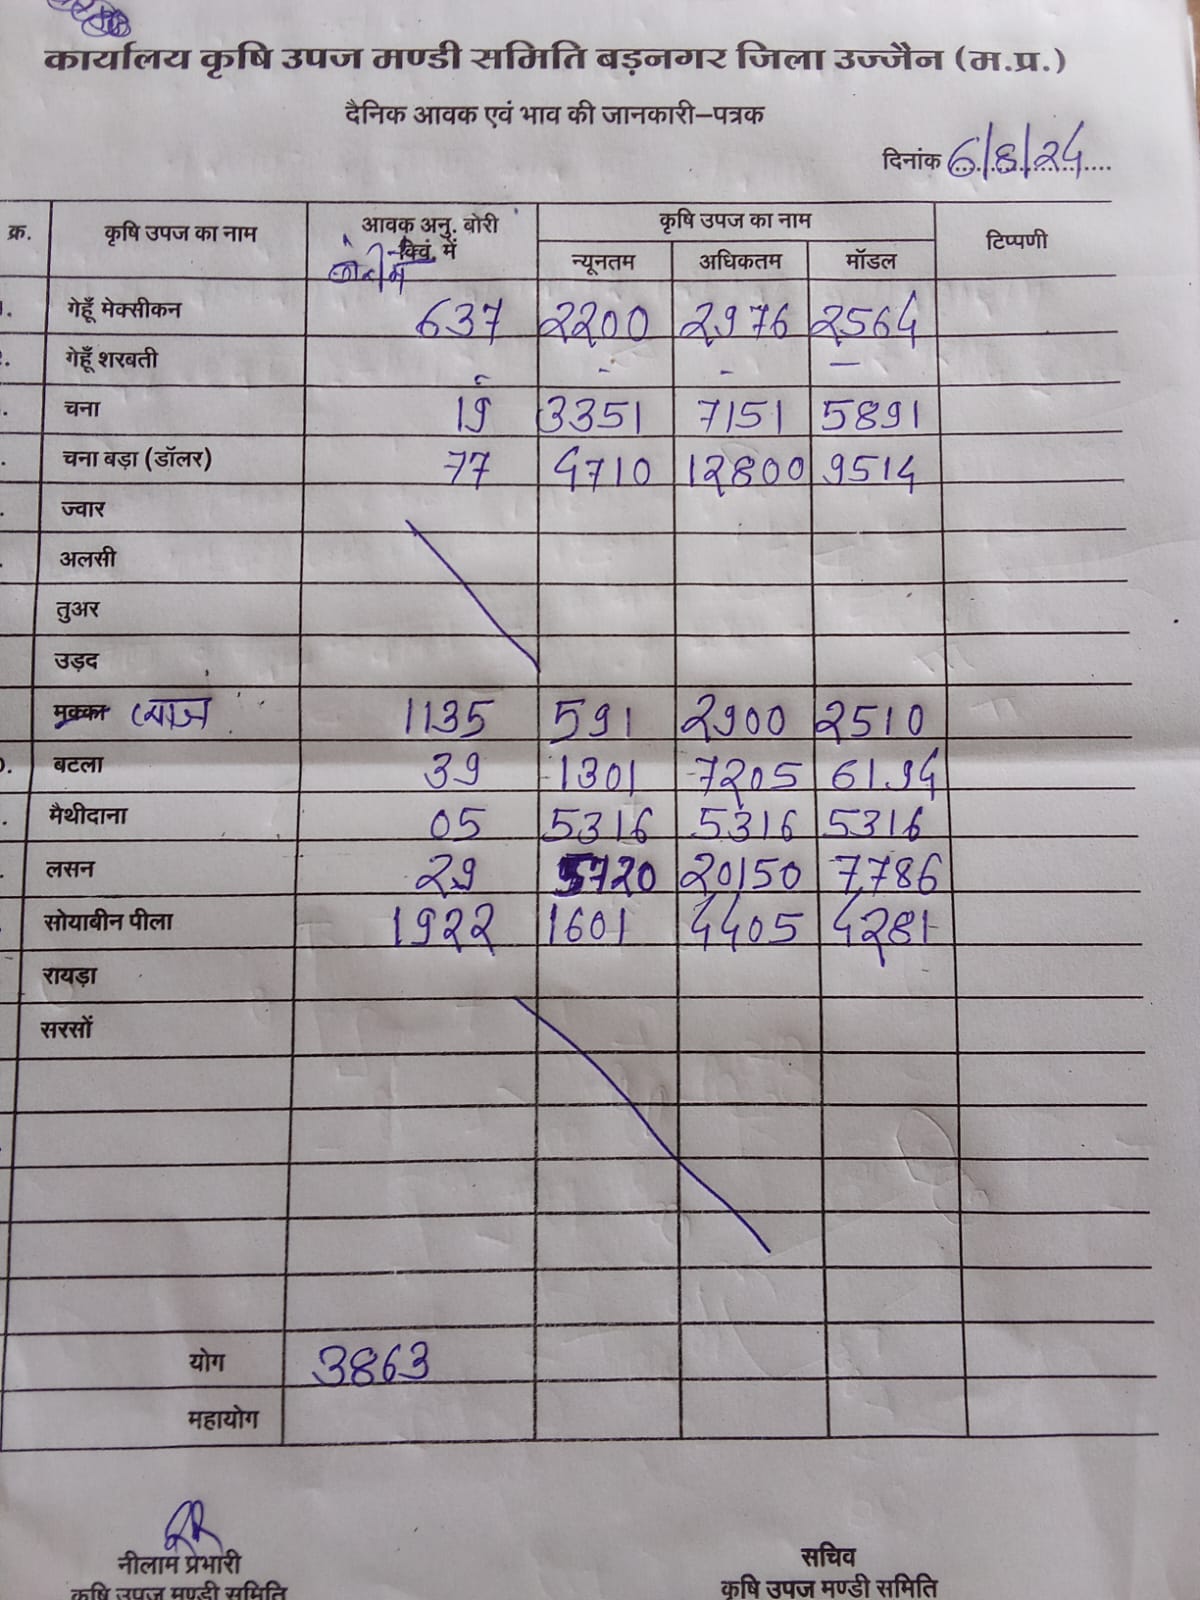 कार्यालय कृषि उपज मण्डी समिति बड़नगर जिला उज्जैन (म.प्र.)
दैनिक आवक एवं भाव की जानकारी–पत्रक
दिनांक 6/8/24
क्र. कृषि उपज का नाम आवक अनु. बोरी क्विं. में कृषि उपज का नाम टिप्पणी
न्यूनतम अधिकतम मॉडल
गेहूँ मेक्सीकन 637 2200 2976 2564
गेहूँ शरबती - - - —
चना 19 3351 7151 5891
चना बड़ा (डॉलर) 77 4710 12800 9514
ज्वार
अलसी
तुअर
उड़द
मक्का प्याज 1135 591 2900 2510
बटला 39 1301 7205 61.94
मैथीदाना 05 5316 5316 5316
लसन 29 5720 20150 7786
सोयाबीन पीला 1922 1601 4405 4281
रायड़ा
सरसों
योग 3863
महायोग
नीलाम प्रभारी सचिव
कृषि उपज मण्डी समिति कृषि उपज मण्डी समिति